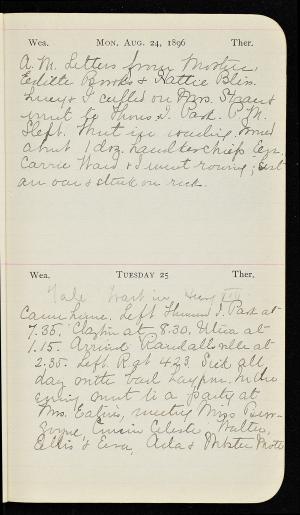 Wea. MON. AUG. 24, 1896 Ther.
A.M. Letters from Mother,
Edith Brooks & Hattie Blin.
Lucy & I called on Mrs. Stears &
went to Thous. I. Park. P.M.
Slept. Went in washing, ironed
about 1 doz. handkerchiefs. Eve.
Carrie Ward & I went rowing; lost
an oar & stuck on rock.
Wea. TUESDAY 25 Ther.
Came home. Left Thousand I. Park at
7.35. Clayton at 8.30. Utica at
1.15. Arrived Randallsville at
2.35. Left R. at 4.23. Sick all
day on the
evening went to a party at
Mrs. Eaton's, meeting Miss
Cousin Celeste, Walter,
Ellis & Eva, Ada & Webster